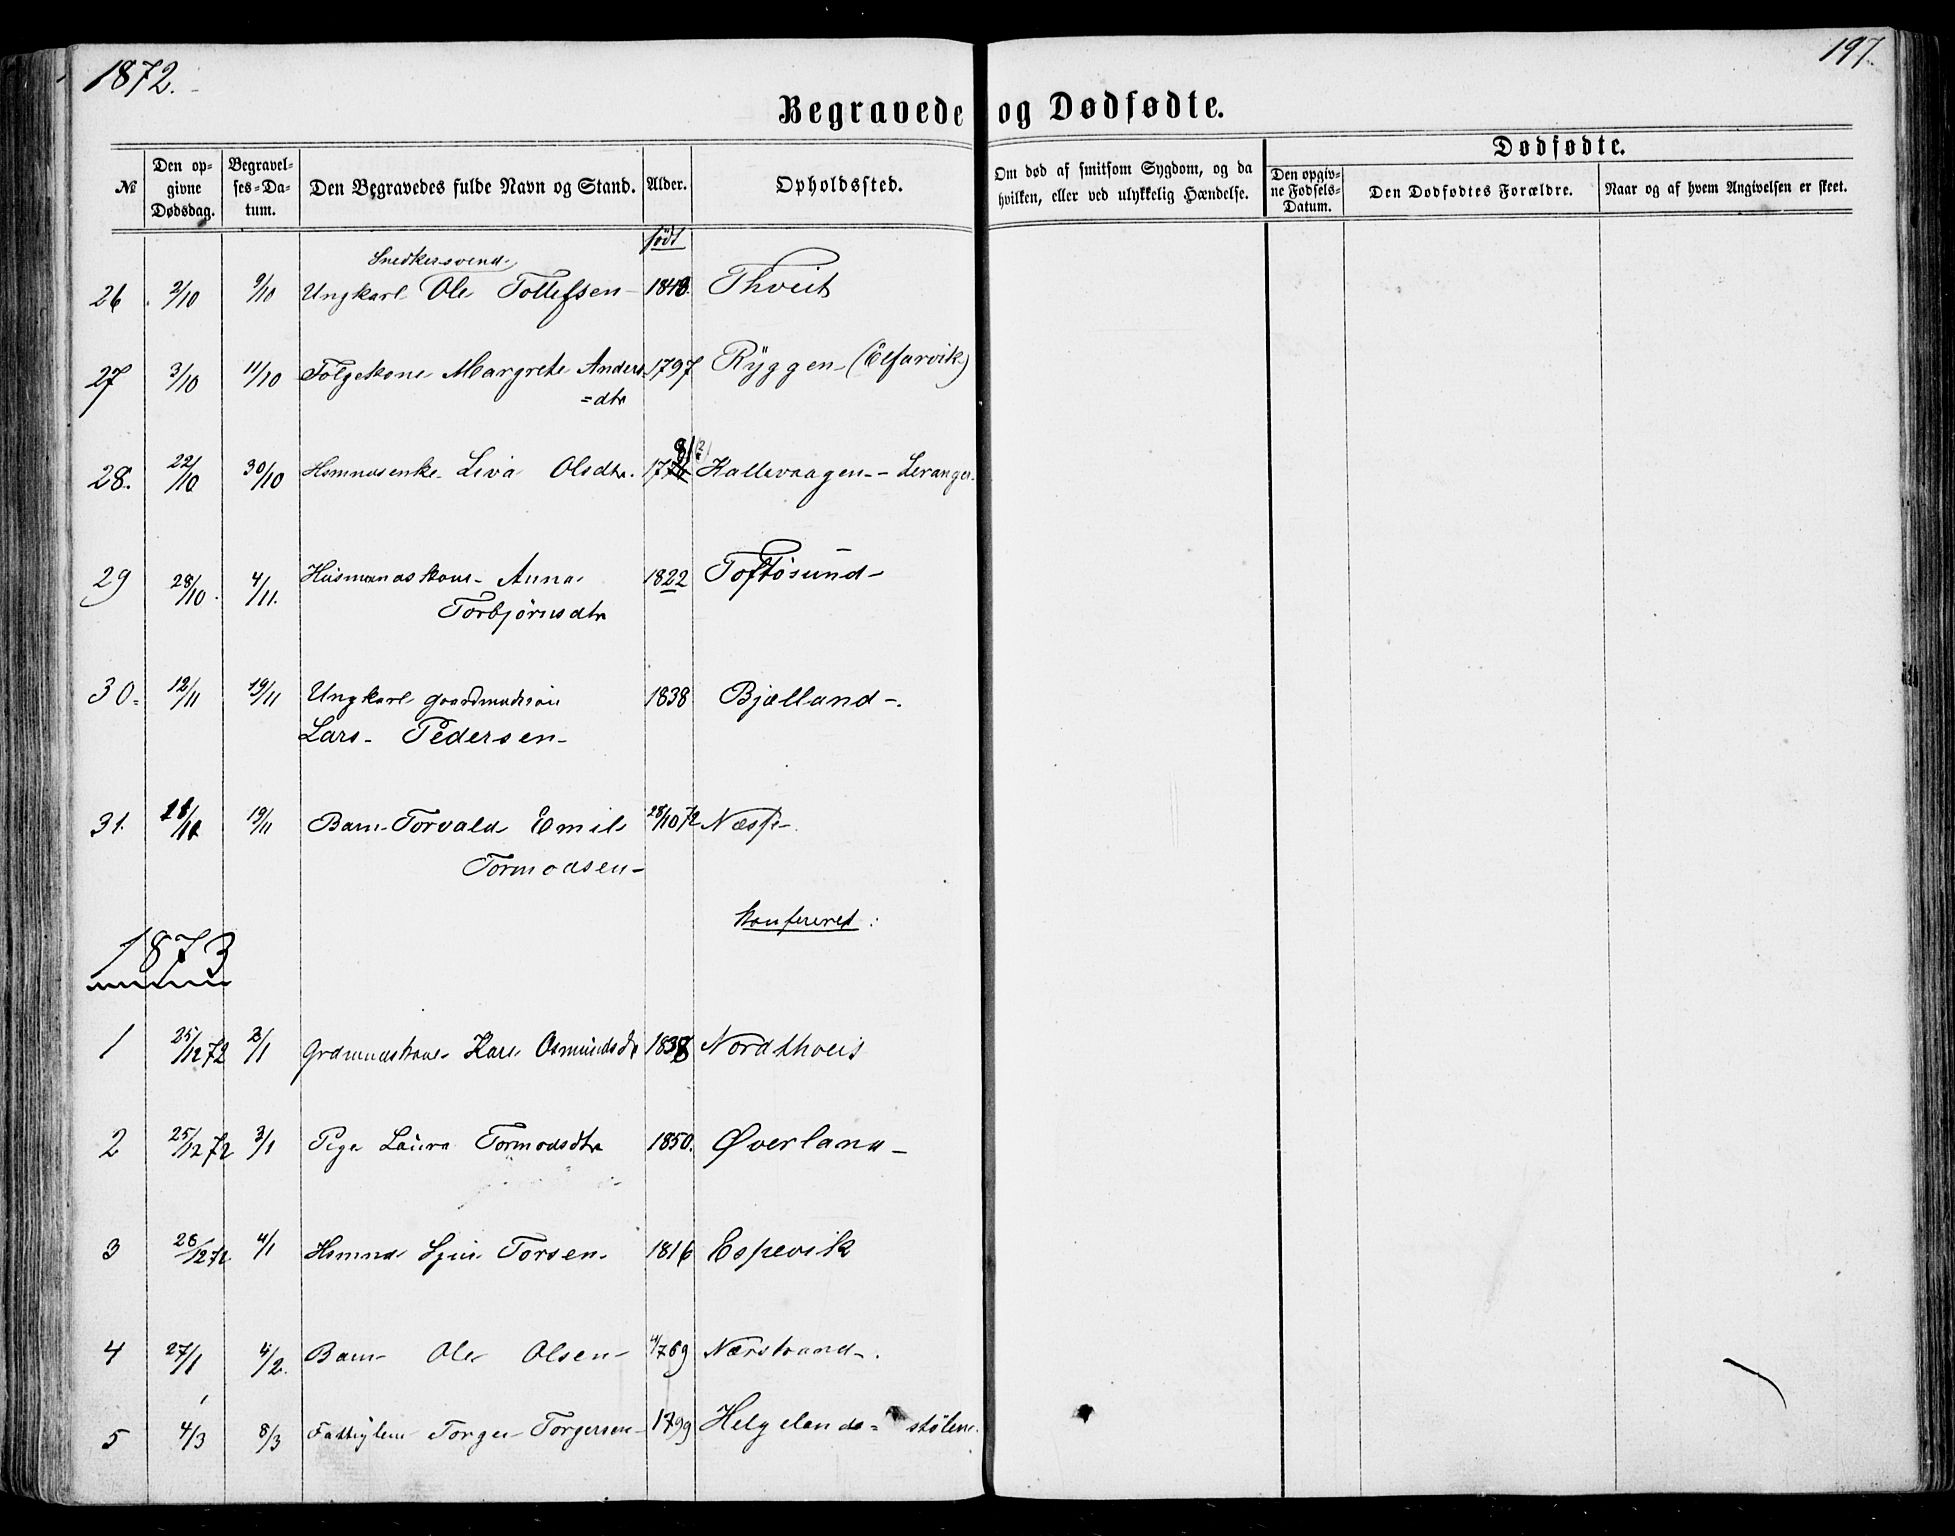 1872.
197.
Begravede og Dødfødte.
№
Den opgivne Dødsdag.
Begravelses-Datum.
Den Begravedes fulde Navn og Stand.
Alder.
Opholdssted.
Om død af smitsom Sygdom, og da hvilken, eller ved ulykkelig Hændelse.
Dødfødte.
Den opgivne Fødsels-Datum.
Den Dødfødtes Forældre.
Naar og af hvem Angivelsen er skeet.
født
Snedkersvend
26 2/10 9/10 Ungkarl Ole Tollefsen 1848. Thveit
27 3/10 11/10 Følgekone Margrete Anders 1797 Ryggen (Elfarvik)
=dtr
28. 22/10 30/10 Hsmndsenke Siva Olsdtr. 17 81 Kallevaagen - Leranger.
29 28/10. 4/11. Husmandskone Anna 1822 Toftøsund
Torbjørnsdtr
30. 12/11 19/11 Ungkarl gaardmandssøn 1838 Bjælland.
Lars Pedersen
31. 19/11 Barn Torvald Emil 28/10 72 Næsse
Tormodsen
Konfereret:
1873
1 25/12 72 3/1 Grdmndskone Kari Osmundsdr 1838 Nordthveit
2 25/12 72 3/1 Pige Laura Tormodsdtr 1850. Øverland
3 28/12 72. 4/1 Hsmnd Sjur Torsen 1816 Espevik
4 27/1 4/2. Barn Ole Olsen 4/7 69 Nærstrand.
5 4/3 8/3 Fattiglem Torger Torgersen 1799 Helgelands= stølene.